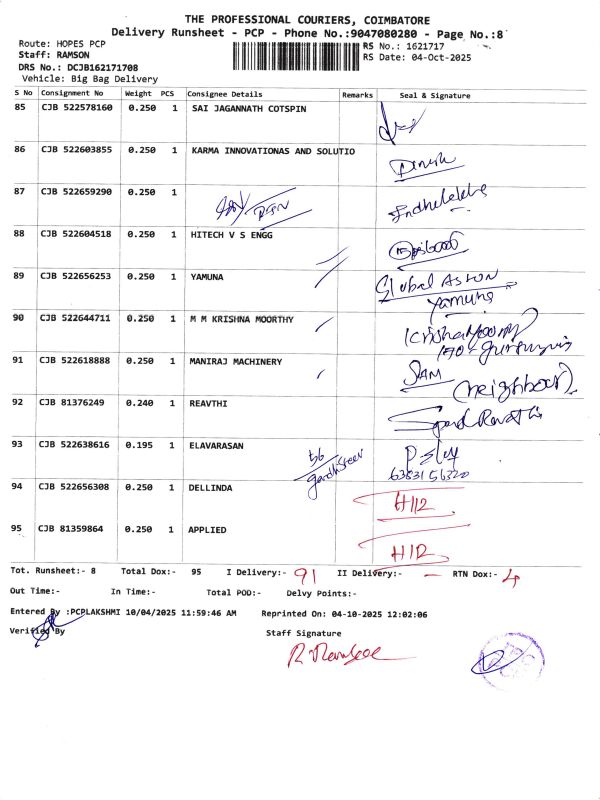 THE PROFESSIONAL COURIERS, COIMBATORE
Delivery Runsheet - PCP - Phone No.:9047080280 - Page No.:8
Route: HOPES PCP
Staff: RAMSON
DRS No.: DCJB162171708
Vehicle: Big Bag Delivery
RS No.: 1621717
RS Date: 04-Oct-2025
S No Consignment No Weight PCS Consignee Details Remarks Seal & Signature
85 CJB 522578160 0.250 1 SAI JAGANNATH COTSPIN
86 CJB 522603855 0.250 1 KARMA INNOVATIONAS AND SOLUTIO Dinesh
87 CJB 522659290 0.250 1
88 CJB 522604518 0.250 1 HITECH V S ENGG
89 CJB 522656253 0.250 1 YAMUNA Global
Yamuna
90 CJB 522644711 0.250 1 M M KRISHNA MOORTHY
91 CJB 522618888 0.250 1 MANIRAJ MACHINERY SAM (neighbour)
92 CJB 81376249 0.240 1 REAVTHI
93 CJB 522638616 0.195 1 ELAVARASAN
6383156320
94 CJB 522656308 0.250 1 DELLINDA H112
95 CJB 81359864 0.250 1 APPLIED
Tot. Runsheet:- 8 Total Dox:- 95 I Delivery:- 91 II Delivery:- — RTN Dox:- 4
Out Time:- In Time:- Total POD:- Delvy Points:-
Entered By :PCPLAKSHMI 10/04/2025 11:59:46 AM Reprinted On: 04-10-2025 12:02:06
Verified By Staff Signature